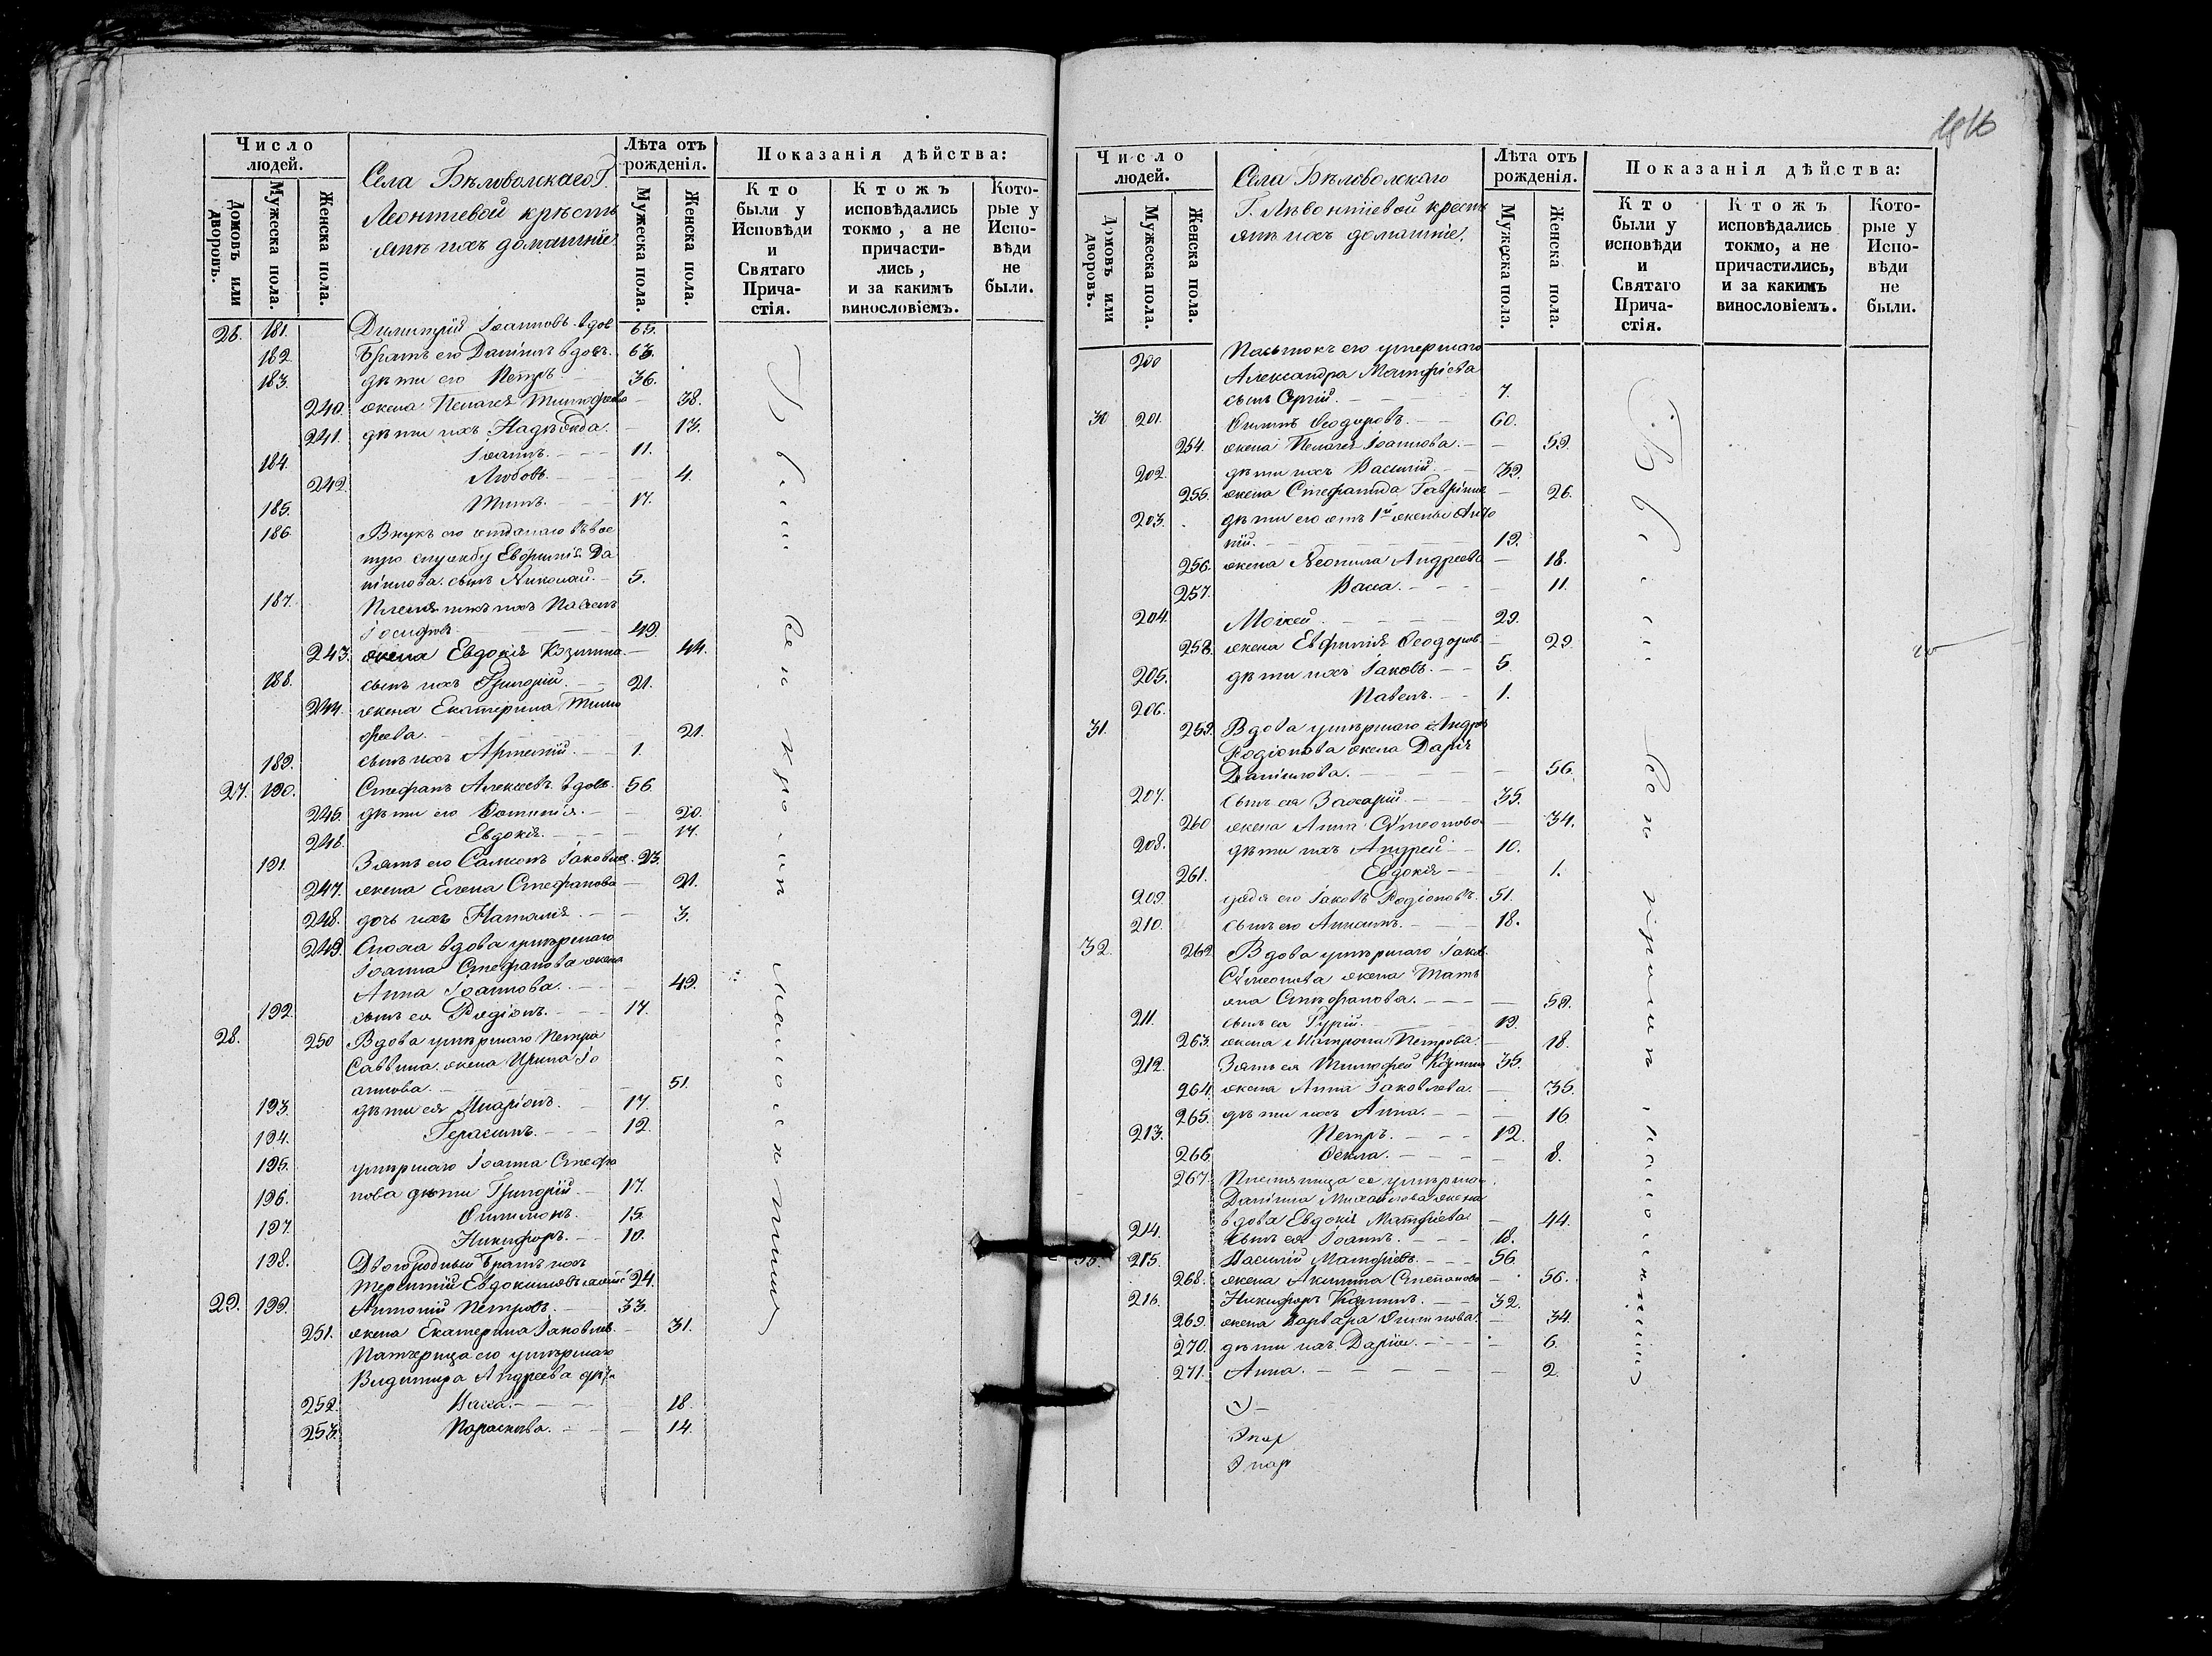 Число людей.
Домовъ или дворовъ.
Мужеска пола.
Женска пола.
Села Бѣловолскаго Г.
Леонтіевой крѣстья
янѣ ихъ домашніе.
Лѣта отъ рожденія.
Мужеска пола.
Женска пола.
Показанія дѣйства:
Кто были у Исповѣди и Святаго Причастія.
Ктожъ исповѣдались токмо, а не причастились, и за какимъ винословіемъ.
Которые у Исповѣди не были.
26. 181. Димитрій Іоанновъ вдов. 65.
182. Братъ его Даніилъ вдовъ. 63.
183. дѣти его Петръ 36.
240. жена Пелагея Тимофеева — 38.
241. дѣти ихъ Надѣжда. — 13.
184. Іоаннъ. 11.
242. Любовь. — 4.
185. Титъ. 17.
186. Внукъ его отданаго въ вое
ную службу Евфимія Да
ніилова сынъ Николай. 5.
187. Племянникъ ихъ Павелъ
Іосифовъ 49.
243. жена Евдокія Козмина — 44.
188. сынъ ихъ Григорій. 21.
244. жена Екатерина Тимо
феева. — 21.
189. сынъ ихъ Артемій. 1.
27. 190. Стефанъ Алексеевъ вдовъ. 56.
245. дѣти его Фотинія. — 20.
246. Евдокія. — 17.
191. Зять его Самсонъ Іаковлев. 23.
247. жена Елена Стефанова — 21.
248. дочь ихъ Наталія. — 3.
249. Сноха вдова умѣршаго
Іоанна Стефанова жена
Анна Іоаннова. — 49.
192. сынъ ея Родіонъ. 17.
28. 250 Вдова умѣршаго Петра
Саввина жена Ирина Іо
аннова. — 51.
193. дѣти ея Иларіонъ. 17.
194. Герасимъ. 12.
195. умѣршаго Іоанна Стефа
196. нова дѣти Григорій. 17.
197. Филимонъ. 15.
Никифоръ. 10.
198. Двоюродный братъ ихъ
Терентій Евдокимовъ 24.
29. 199. Антоній Петровъ. 33.
251. жена Екатерина Іаковлев. — 31.
Патчерица его умѣршаго
Владимира Андреева дѣти
252. Васса. — 18.
253. Параскева. — 14.
Всѣ были
Число людей.
Домовъ или дворовъ.
Мужеска пола.
Женска пола.
Села Бѣловолскаго
Г. Лѣвонтіевой крестья
янѣ ихъ домашніе.
Лѣта отъ рожденія.
Мужеска пола.
Женска пола.
Показанія дѣйства:
Кто были у исповѣди и Святаго Причастія.
Ктожъ исповѣдались токмо, а не причастились, и за какимъ винословіемъ.
Которые у Исповѣди не были.
200 Пасынокъ его умершаго
Александра Матфіева
сынъ Сергій. 7.
30 201. Филипъ Феодоровъ. 60.
254. жена Пелагея Іоаннова. — 59.
202. дѣти ихъ Василій. 39.
255. жена Стефанида Гавріилов — 26.
203. дѣти его отъ 1й жены Анто
ній. 19.
256. жена Неонила Андреева — 18.
257. Васса. — 11.
204. Моісей 29.
258. жена Евфимія Феодоров — 29.
205. дѣти ихъ Іаковъ. 5.
206. Павелъ. 1.
31. 259. Вдова умѣршаго Андрея
Родіонова жена Дарія
Даніилова. — 56.
207. сынъ ея Захарій. 35.
260 жена Анна Сѵмеонова — 34.
208. дѣти ихъ Андрей 10.
261. Евдокія — 1.
209. дядя его Іаковъ Родіоновъ. 51.
210. сынъ его Анисимъ. 18.
32. 262. Вдова умѣршаго Іаков.
Сѵмеонова жена Татъ
яна Стѣфанова. — 59.
211. сынъ ея Гурій. 19.
263. жена Матрона Петрова. — 18.
212. Зять ея Тимофей Козмин 35.
264. жена Анна Іаковлева. — 35.
265. дѣти ихъ Анна. — 16.
213. Петръ. 12.
266. Фекла. — 8.
267. Племянница ее умѣршаго
Даніила Михайлова жена
вдова Евдокія Матфіева — 44.
214. сынъ ея Іоаннъ. 18.
33. 215. Василій Матфіевъ. 56.
268. жена Акилина Степанова — 56.
216. Никифоръ Козминъ. 32.
269. жена Варвара Филипова. — 34.
270. дѣти ихъ Дарія. — 6.
271. Анна. — 2.
Всѣ